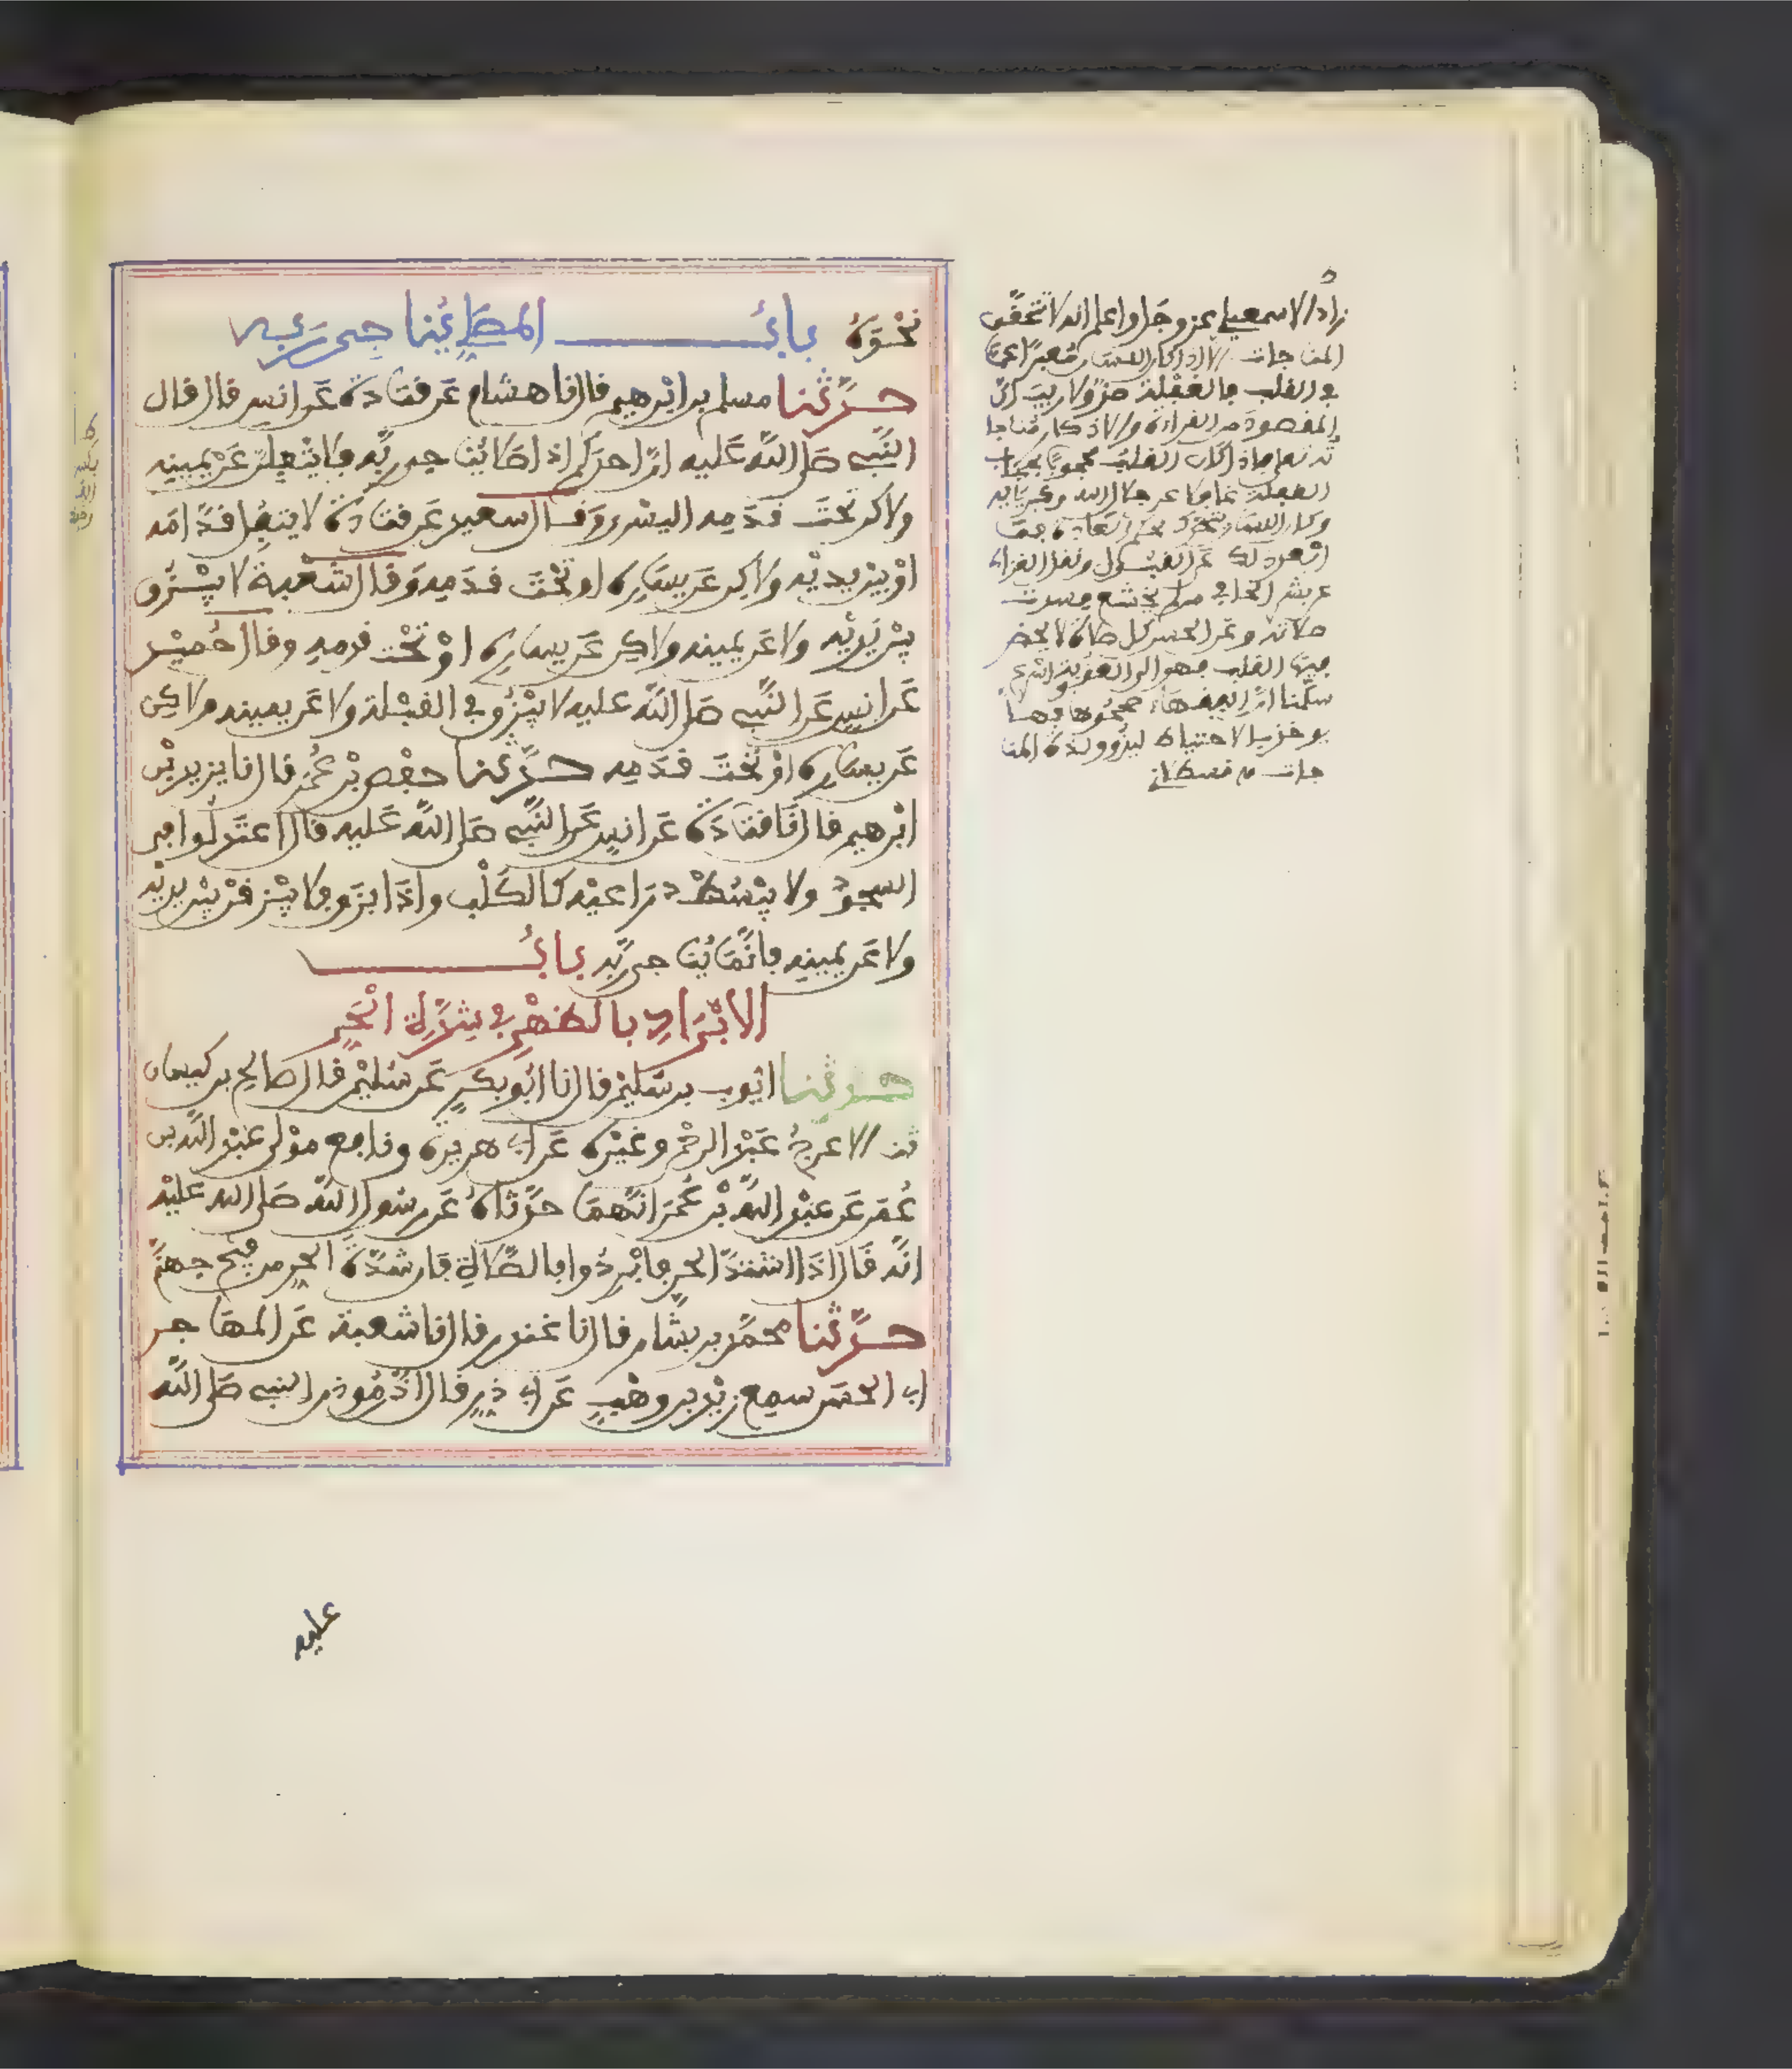 نحوه باب المصلي يناجي ربه
حدثنا مسلم بن ابرهيم قال نا هشام عن قتادة عن انس قال قال
النبي صلى الله عليه ان احدكم اذا صلى يناجي ربه فلا يتفلن عن يمينه
ولاكن تحت قدمه اليسرى وقال سعيد عن قتادة لا يتفل قدامه
او بين يديه ولاكن عن يساره او تحت قدمه وقال شعبة لا يبزق
بين يديه ولا عن يمينه ولاكن عن يساره او تحت قدمه وقال حميد
عن انس عن النبي صلى الله عليه لا يبزق في القبلة ولا عن يمينه ولاكن
عن يساره او تحت قدمه حدثنا حفص بن عمر قال نا يزيد بن
ابرهيم قال نا قتادة عن انس عن النبي صلى الله عليه قال اعتدلوا في
السجود ولا يبسط ذراعيه كالكلب واذا بزق فلا يبزقن بين يديه
ولا عن يمينه فانما يناجي ربه باب
الابراد بالظهر في شدة الحر
حدثنا ايوب بن سليمن قال نا ابو بكر عن سليمن قال صالح بن كيسان
نا الاعرج عبد الرحمن وغيره عن ابي هريرة ونافع مولى عبد الله بن
عمر عن عبد الله بن عمر انهما حدثاه عن رسول الله صلى الله عليه
انه قال اذا اشتد الحر فابردوا بالصلاة فان شدة الحر من فيح جهنم
حدثنا محمد بن بشار قال نا غندر قال نا شعبة عن المهاجر
ابي الحسن سمع زيد بن وهب عن ابي ذر قال اذن موذن النبي صلى الله
عليه
زاد الاسمعيلي عز وجل واعلم انه لا تتحقق
المناجات الا اذا كان اللسان معبرا عما
في القلب فالغفلة ضد ولا ريب ان
المقصود من القراءة والاذكار مناجا
ته تعلى فاذا كان القلب محجوبا بحجاب
الغفلة غافلا عن جلال الله وكبريايه
وكان اللسان يتحرك بحكم العادة فما
ابعد ذلك عن القبول ونقل الغزالي
عن بشر الحافي من لم يخشع فسدت
صلاته وعن الحسن كل صلاة لا يحضر
فيها القلب فهو الى العقوبة اسرع
سلمنا ان الفقهاء صححوها فهلا
يوخذ بالاحتياط ليذوق لذة المنا
جات قسطلاني